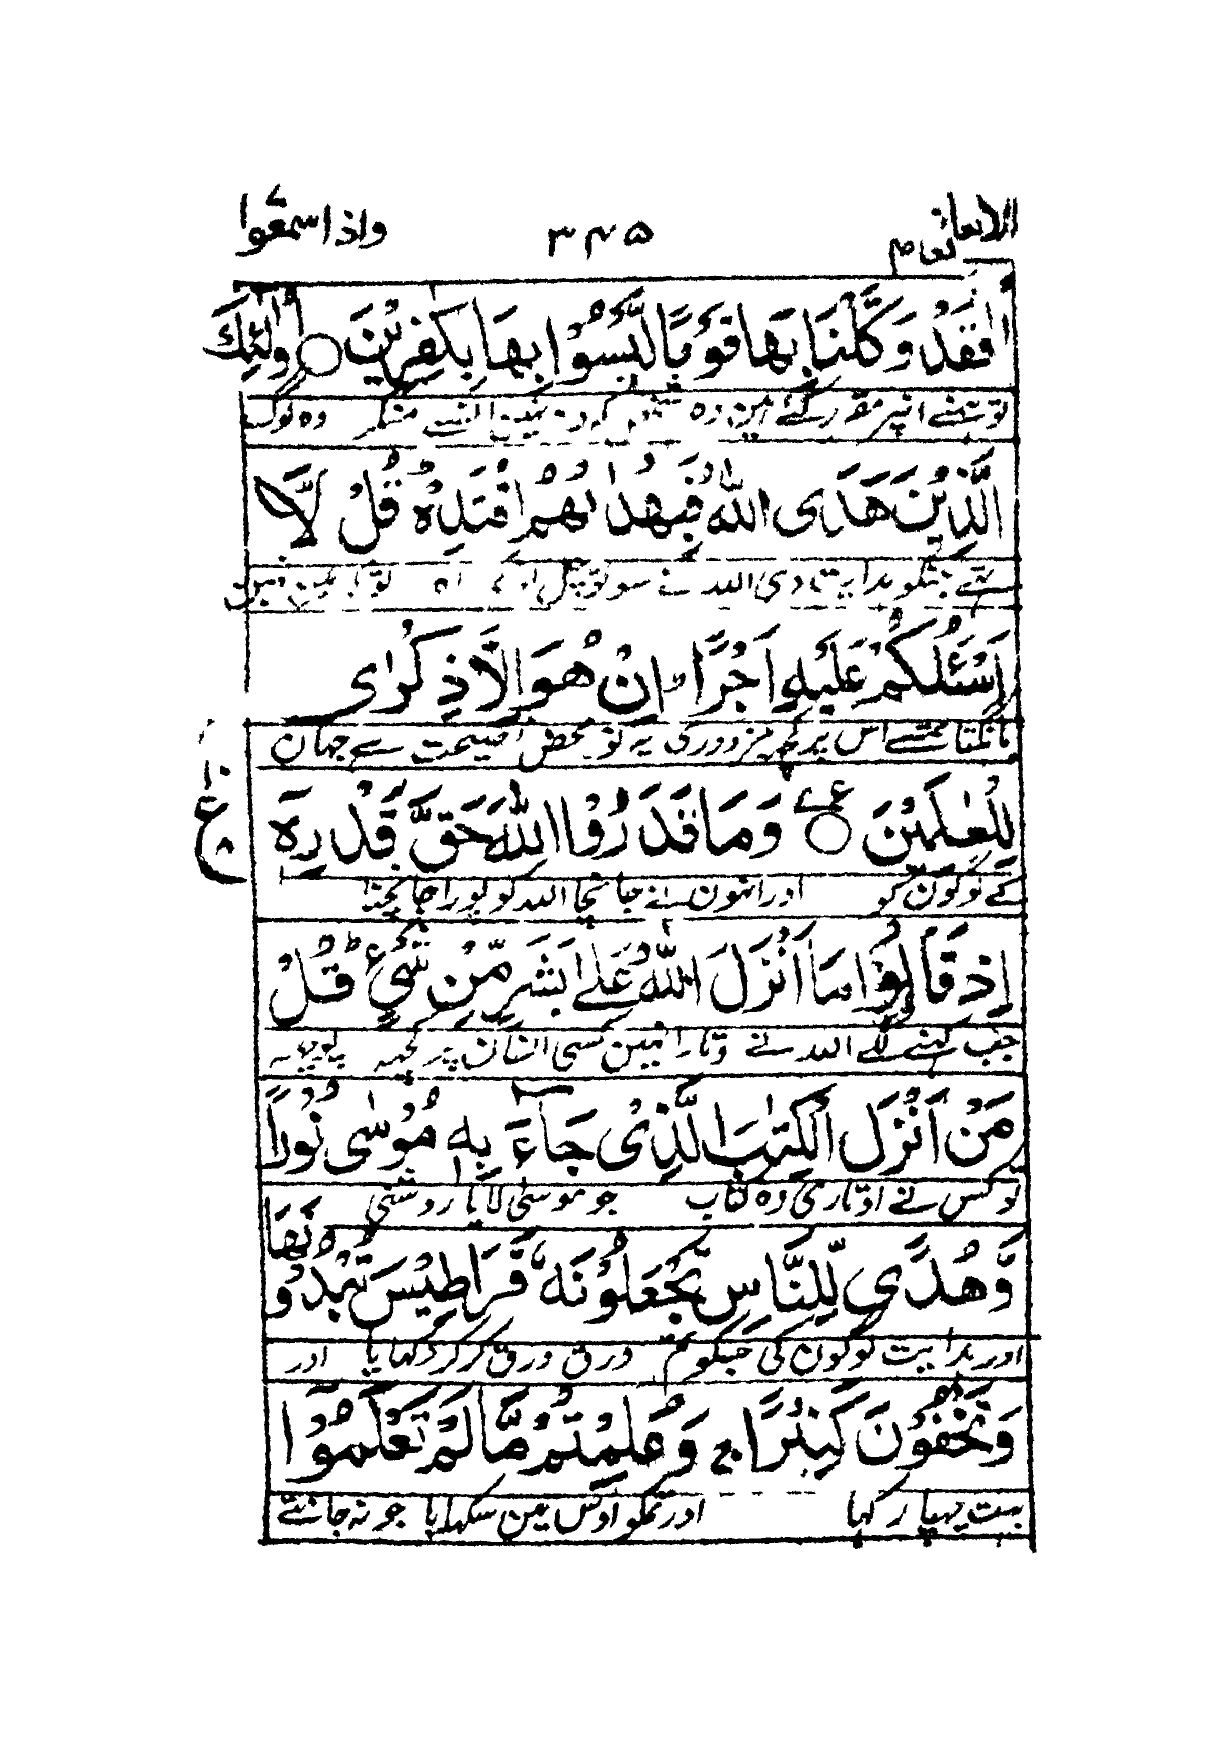 الانعام ۳۴۵ واذاسمعوا
فَقَدْ وَكَّلْنَا بِهَا قَوْمًا لَّيْسُوْا بِهَا بِكٰفِرِيْنَ ○ اُولٰٓئِكَ
تو ہمنے انپر مقرر کئے ہین وہ شخص کہ نہین انسے منکر وہ لوگ
الَّذِيْنَ هَدَى اللّٰهُ فَبِهُدٰىهُمُ اقْتَدِهْ ؕ قُلْ لَّآ
تھے جنکو ہدایت دی اللہ نے سو تو چل انکی راہ تو کہہ مین نہین
اَسْـَٔلُكُمْ عَلَيْهِ اَجْرًا ؕ اِنْ هُوَ اِلَّا ذِكْرٰى
مانگتا تمسے اس پر کچھ مزدوری یہ تو محض نصیحت ہے جہان
لِلْعٰلَمِيْنَ ○ ع وَمَا قَدَرُوا اللّٰهَ حَقَّ قَدْرِهٖٓ
کے لوگون کو اور انہون نے جانچا اللہ کو پورا جانچنا
اِذْ قَالُوْا مَآ اَنْزَلَ اللّٰهُ عَلٰى بَشَرٍ مِّنْ شَيْءٍ ؕ قُلْ
جب کہنے لگے اللہ نے اوتارا نہین کسی انسان پر کچھ پوچھ
مَنْ اَنْزَلَ الْكِتٰبَ الَّذِيْ جَآءَ بِهٖ مُوْسٰى نُوْرًا
تو کس نے اوتاری وہ کتاب جو موسٰی لایا روشنی
وَّهُدًى لِّلنَّاسِ تَجْعَلُوْنَهٗ قَرَاطِيْسَ تُبْدُوْنَهَا
اور ہدایت لوگون کی جسکو تم ورق ورق کرکر دکھایا اور
وَتُخْفُوْنَ كَثِيْرًا ۚ وَعُلِّمْتُمْ مَّا لَمْ تَعْلَمُوْٓا
بہت چھپا رکھا اور تمکو اوس مین سکھایا جو نہ جانتے